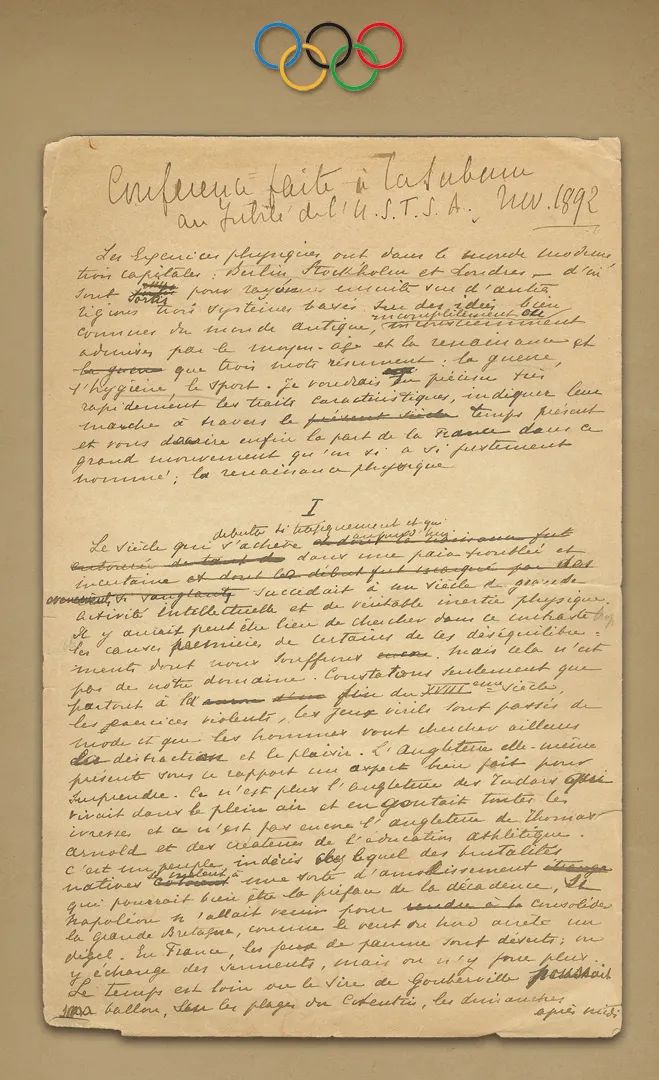 Conférence faite à la Sorbonne
au Jubilé de l'U.S.F.S.A. Nov. 1892
Les Exercices physiques ont dans le monde moderne
trois capitales : Berlin, Stockholm et Londres – d'où
sont sortis pour rayonner ensuite sur d'autres
régions trois systèmes basés sur des idées bien
connues du monde antique, incomplètement
admises par le moyen-âge et la renaissance et
que trois mots résument : la guerre,
l'hygiène, le sport. Je voudrais en préciser très
rapidement les traits caractéristiques, indiquer leur
marche à travers le présent siècle temps présent
et vous dire enfin la part de la France dans ce
grand mouvement qu'on a si justement
nommé : la renaissance physique
I
débuta si tragiquement et qui
Le siècle qui s'achève
dans une paix troublée et
incertaine et dont le début fut marqué par des
si sanglants succédait à un siècle de grande
activité intellectuelle et de véritable inertie physique.
Il y aurait peut être lieu de chercher dans ce contraste
les causes premières de certains de ces déséquilibre-
ments dont nous souffrons encore. mais cela n'est
pas de notre domaine. Constatons seulement que
partout à la fin du XVIIIème siècle,
les exercices violents, les jeux virils sont passés de
mode et que les hommes vont chercher ailleurs
la distraction et le plaisir. L'Angleterre elle-même
présente sous ce rapport un aspect bien fait pour
surprendre. Ce n'est plus l'angleterre des Tudors qui
vivait dans le plein air et en goûtait toutes les
ivresses et ce n'est pas encore l'angleterre de Thomas
Arnold et des créateurs de l'éducation athlétique.
C'est un peuple indécis chez lequel des brutalités
natives se mêlent à une sorte d'amollissement étrange
qui pourrait bien être la préface de la décadence, si
Napoléon n'allait venir pour rendre à la consolider
la grande Bretagne, comme le vent du nord arrête un
dégel. En France, les jeux de paume sont déserts ; on
y échange des serments, mais on n'y joue plus.
Le temps est loin où le sire de Gouberville poussait
ballon, sur les plages du Cotentin, les dimanches
après midi